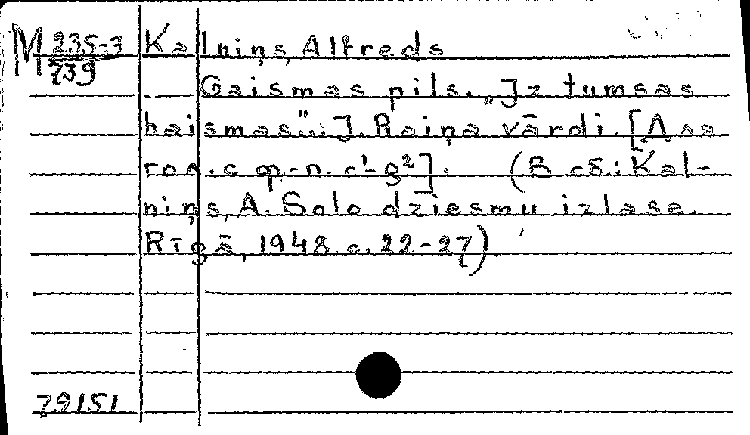 M 235-3
739
Kalniņs, Alfreds
Gaismas pils. „Iz tumsas
haismas"... J. Raiņa vārdi. [Для
голоса с ф.-п. c¹-g²]. (В сб.: Kal-
niņs, A. Solo dziesmu izlase.
Rīgā, 1948 с. 22-27)
79151